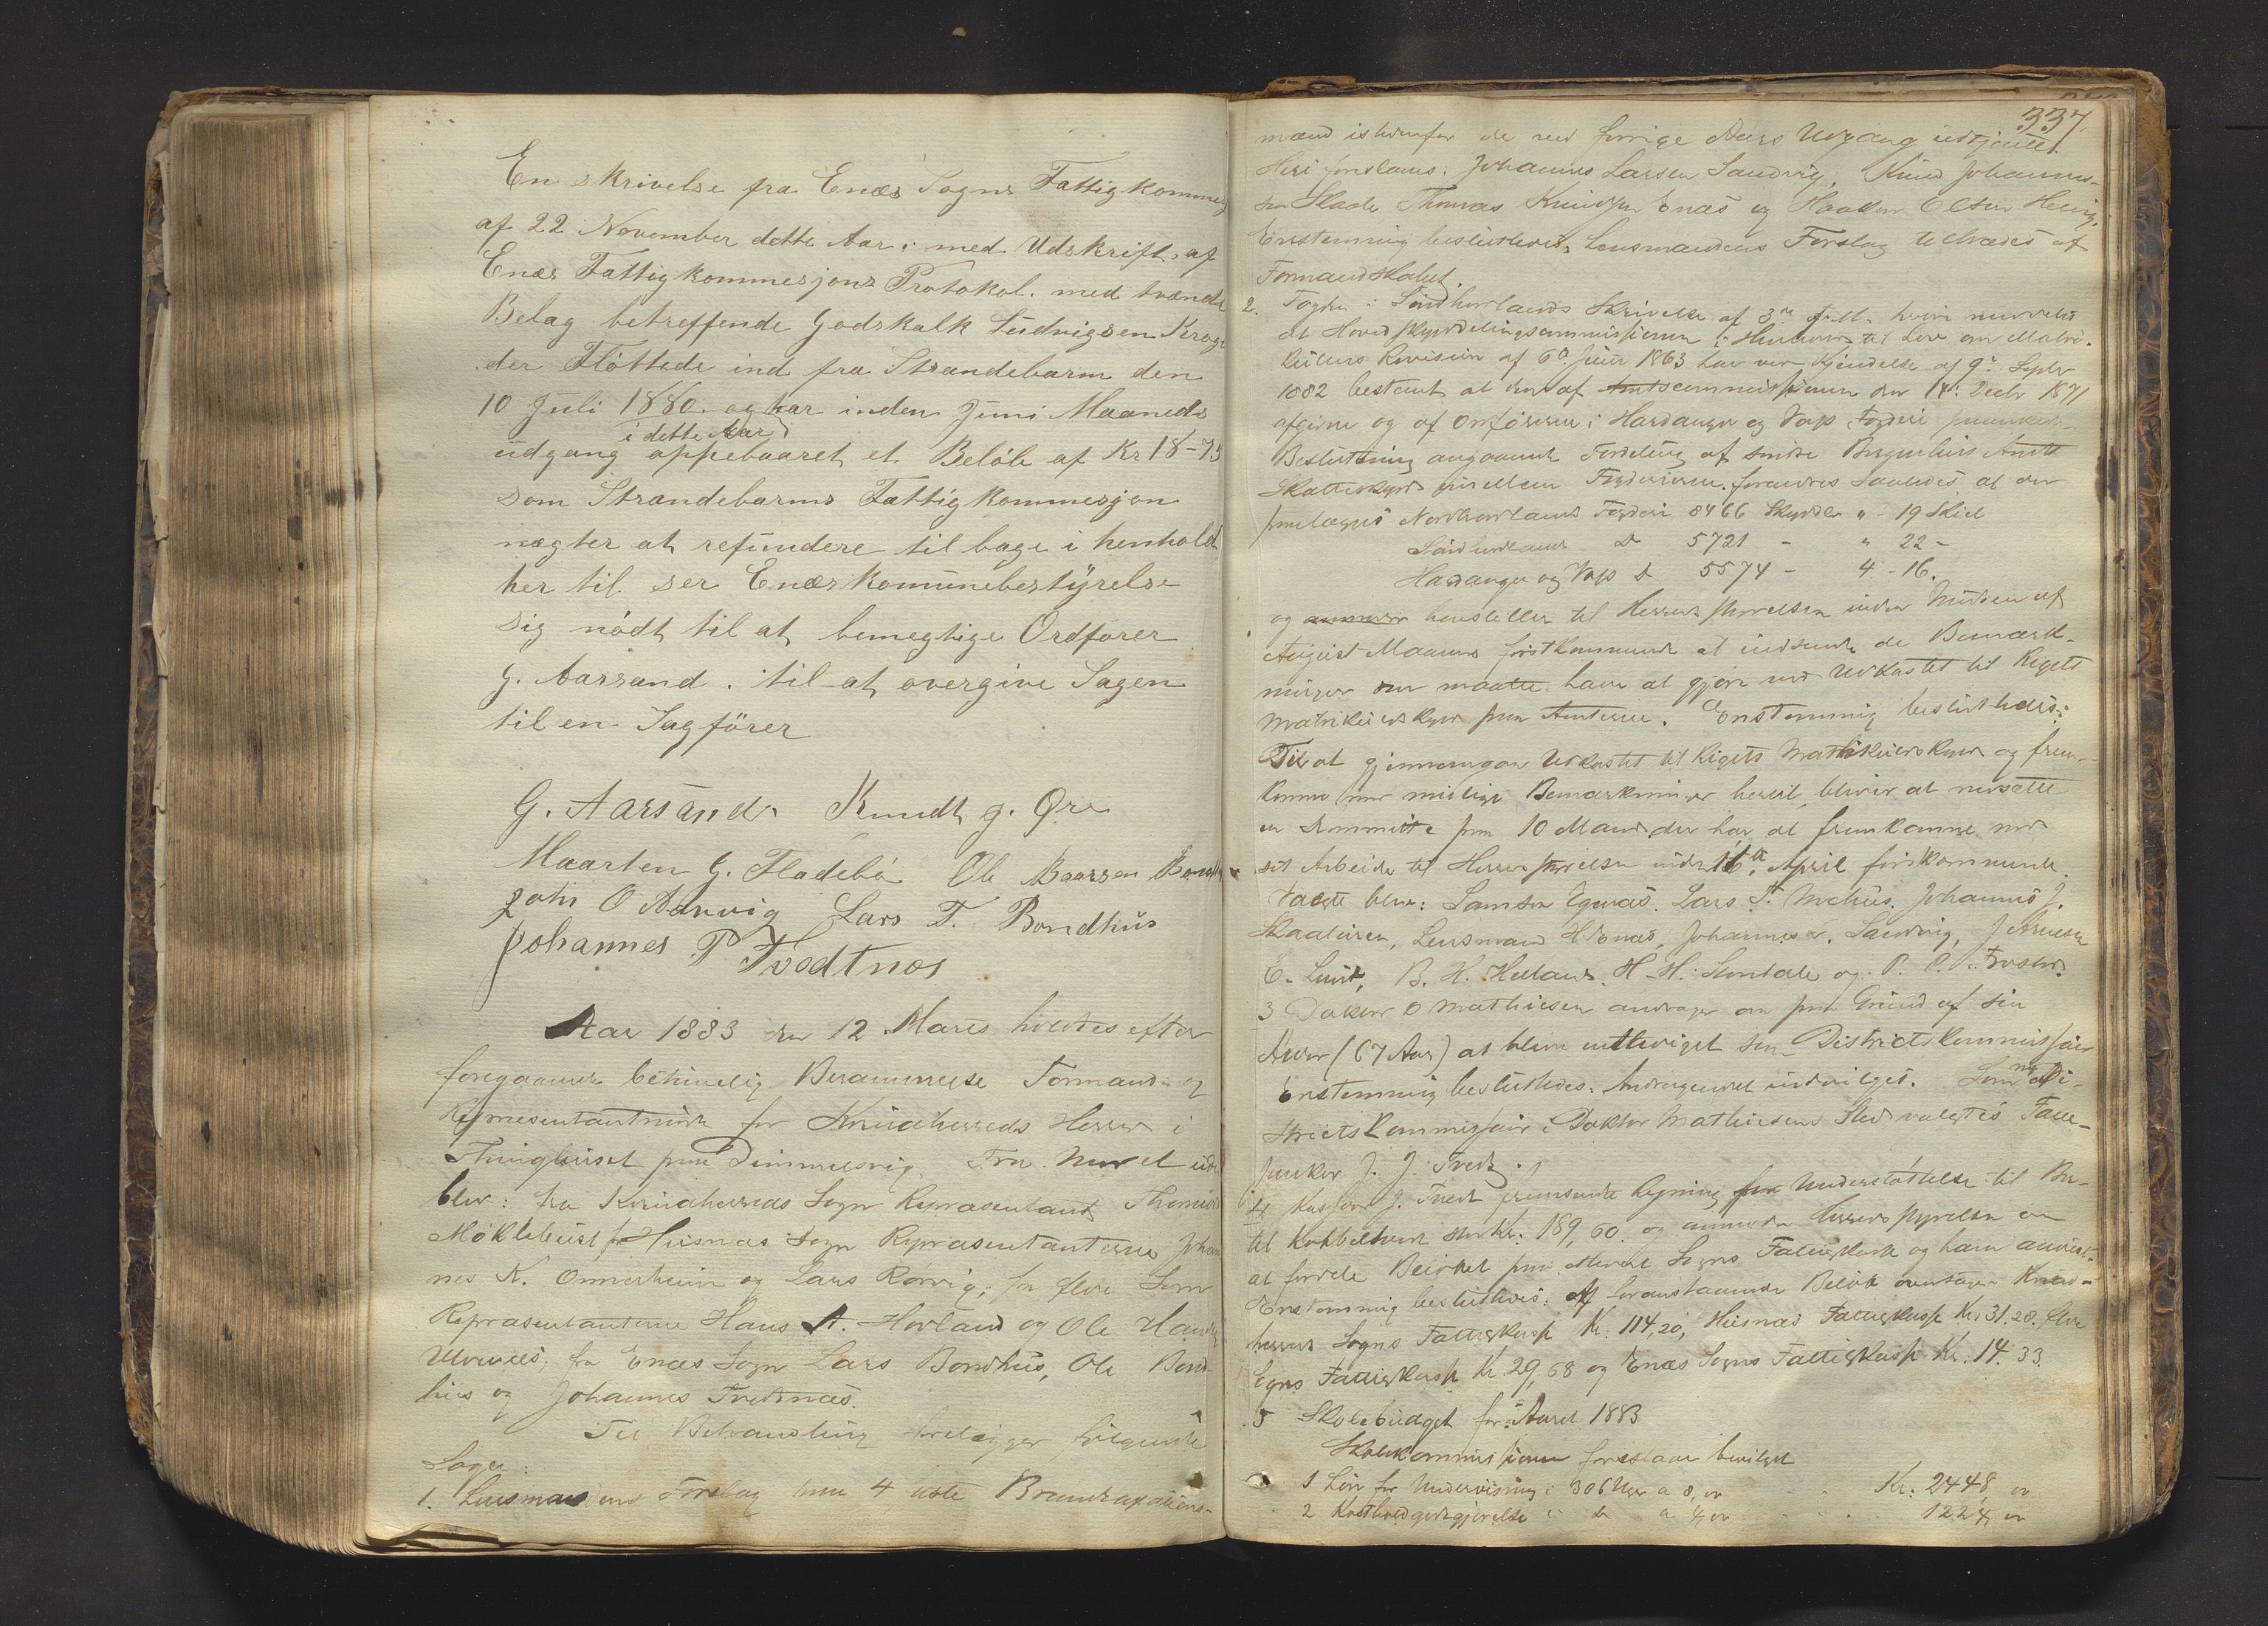 En skrivelse fra Enæs Sogns Fattigkommesj
af 22 November dette Aar: med Udskrift af
Enæs Fattigkommesjons Protokol. med tvænde
Belag betreffende Godskalk Ludvigsen Krage
der Flöttede ind fra Strandebarm den
10 Juli 1880. og har inden Juni Maaneds
i dette Aar
udgang oppebaaret et Beløb af Kr 18-75
som Strandebarms Fattigkommesjon
nægter at refundere tilbage i henhold
her til ser Enæs komunebestyrelse
sig nödt til at bemegtige Ordförer
G. Aarsand. til at overgive Sagen
til en Sagförer
G. Aarsand. Knudt G. Øre
Maarten G. Fladebø Ole Baarsen Bondh
Johs O Aarvig Lars T. Bondhus
Johannes P Tvedtnes
Aar 1883 den 12 Marts holdtes efter
foregaaende behørig Berammelse Formands- og
Repræsentantmøde for Kvindherreds Herred i
Thinghuset paa Dimmelsvig. Fra Mødet ude
blev: fra Kvindherreds Sogn Repræsentant
Møklebust fr Husnæs Sogn Repræsentanterne Johan
nes K. Onnerheim og Lars Rørvig; fra Ølve Sogn
Repræsentanterne Hans A. Hovland og Ole
fra Enæs Sogn Lars Bondhus, Ole Bond-
hus og Johannes Tvedtnæs.
Til Behandling foreligger følgende
Sager:
1. Lensmandens Forslag paa 4 note Brandtaxations-
337.
mænd istedenfor de ved forrige Aars Udgang udtjente.
Heri foreslaaes: Johannes Larsen Sandvig, Knud Johannes-
sen Skaale Thomas Knudsen Enæs og Haakon Olsen
Enstemmig besluttedes: Lensmandens Forslag tiltrædes af
Formandskabet.
2. Fogden i Søndhorlands Skrivelse af 3die f. M. hvori meddeles
at Hovedskylddelingscommissionen i Henhold til Lov om Matri-
kulens Revision af 6te Juni 1863 har ved Kjendelse af 9de Septbr
1882 bestemt at den af Amtscommissionen den 14: Decbr 1871
afgivne og af Ordførerne i Hardanger og Vos Fogderi
Beslutning angaaende Fordeling af søndre Bergenhus Amts
Skatteskyld imellem Fogderierne. forandres saaledes at der
paalægges Nordhorlands Fogderi 8466 Skylddlr " - 19 Skil
Søndhorlands Do 5721 - " 22 -
Hardanger og Vos Do 5574 - 4 - 16.
og henstiller til Herredsstyrelsen inden Midten af
August Maaned førstkommende at indsende de Bemærk-
ninger den maatte have at gjøre ved Udkastet til Rigets
Matrikulskyld paa Amterne. Enstemmig besluttedes:
Til at gjennemgaa Udkastet til Rigets Matrikulskyld og frem-
komme med mulige Bemærkninger hertil bliver at nedsætte
en Kommitte paa 10 Mand der har at fremkomme med
sit Arbeide til Herredsstyrelsen inden 16de April førstkommende.
Valgte blev: Samson Egenæs. Lars T. Johannes J.
Skaaluren, Lensmand H Enæs, Johannes L. Sandvig,
E. Lund, B. K. Helland, H. H. Sundal og P. P.
3 Doktor O Mathiesen andrager om paa Grund af sin
Alder (67 Aar) at blive entlediget som Districtskommissær
Enstemmig besluttedes. Andragendet indvilges. Som ny Di-
strictskommissær i Doktor Mathiesens Sted valgtes
J. J. Tvedt.
4 Kasserer J. Tvedt fremsendte Regning for Understøttelse til
stor Kr: 189,60. og anmoder Herredsstyrelsen om
at fordele Beløbet paa Sogns Fattigkasse og ham anvist.
Enstemmig besluttedes: Af foranstaaende Beløb overtager Kvind-
herreds Sogns Fattigkasse Kr. 114,20, Husnæs Fattigkasse Kr. 31.28. Ølve
Sogns Fattigkasse Kr. 29,68 og Enæs Sogns Fattigkasse Kr. 14.33.
5 Skolebudget for Aaret 1883
Skolekommissionen foreslaar bevilget
1 Løn for Undervisning i 306 Uger a 8, oo Kr: 2448, oo
2 Kostholdsgodtgjørelse i do a 4, oo 1224, oo